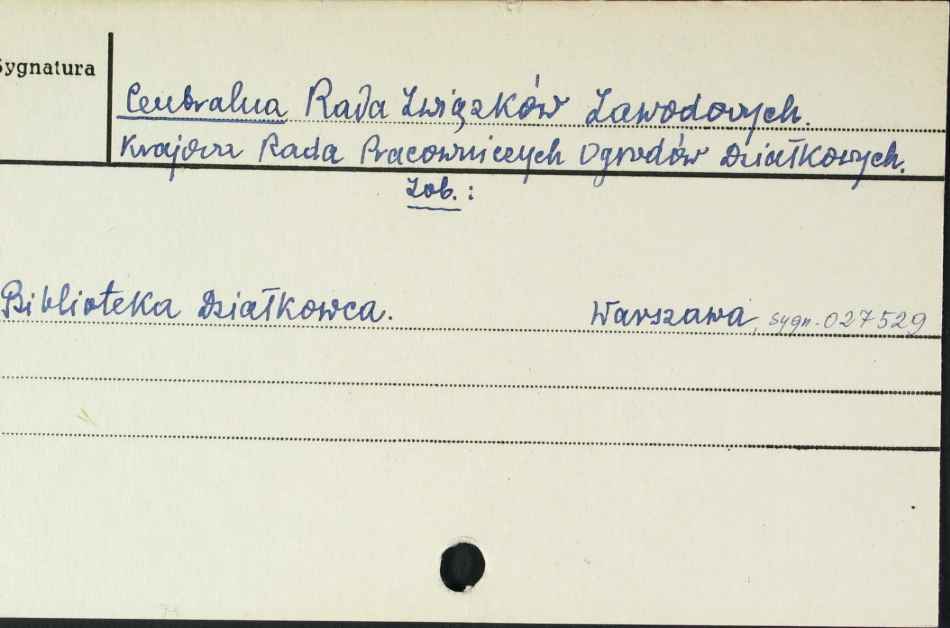 Sygnatura
Centralna Rada Związków Zawodowych.
Krajowa Rada Pracowniczych Ogrodów Działkowych.
Zob.:
Biblioteka Działkowca. Warszawa sygn. 027529